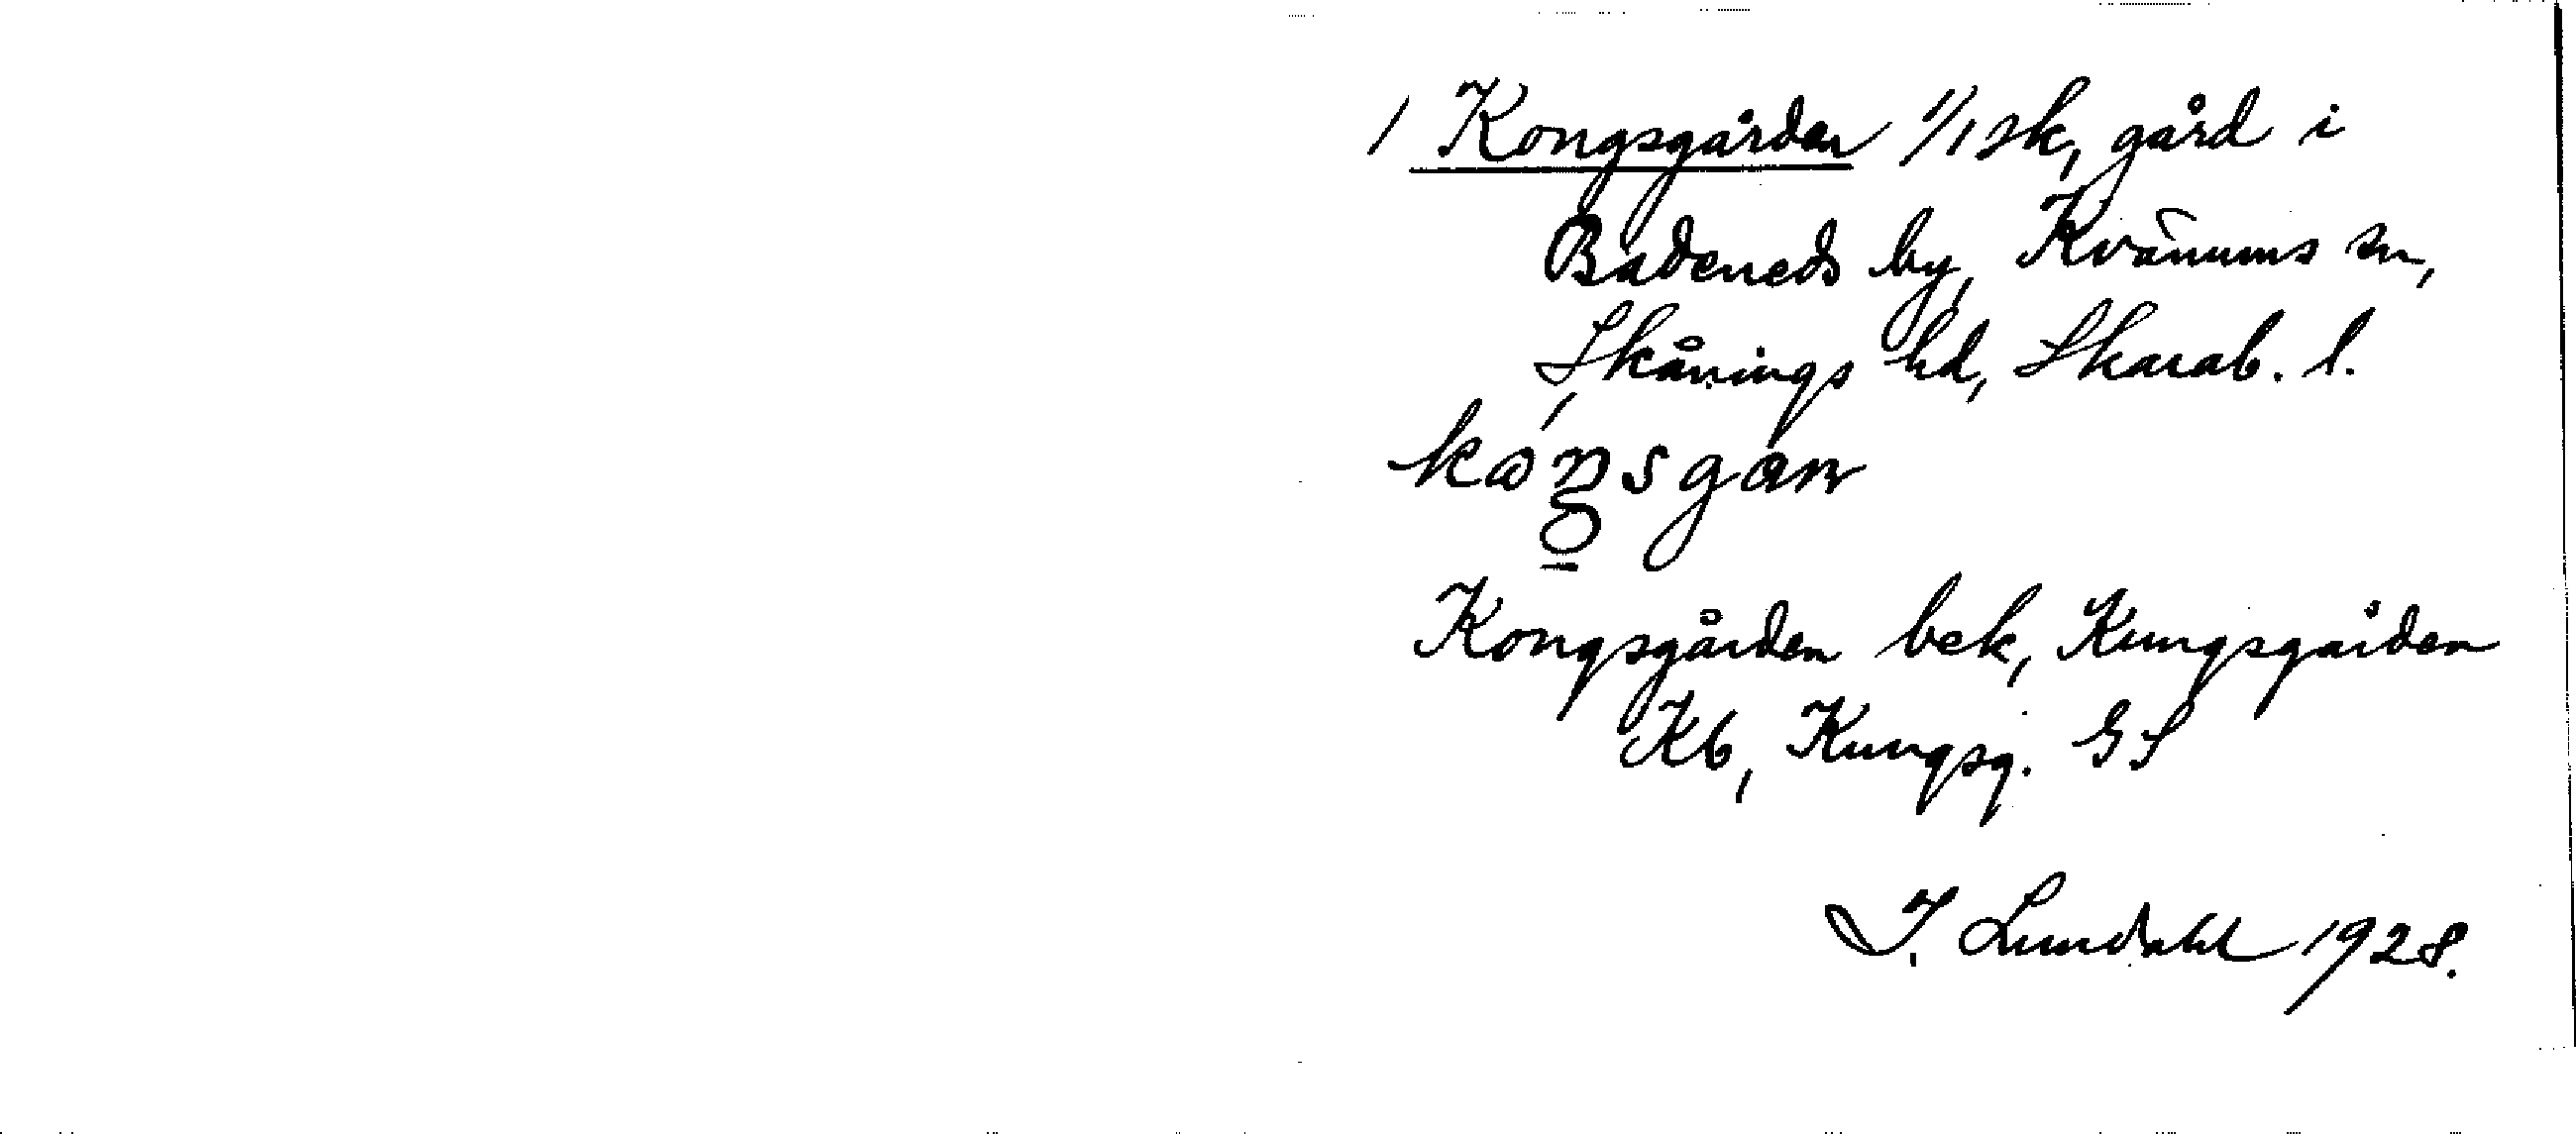 1 Kongsgården 1/1 sk, gård i
Badeneds by, Kvänums sn,
Skånings hd, Skarab. l.
kåŋsgan
Kongsgården bek, Kungsgården
Kb, Kungsg. GS
I. Lundahl 1928.